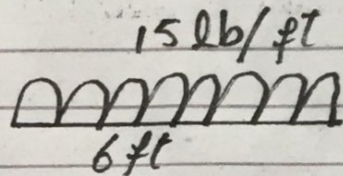 15 lb/ft
6 ft